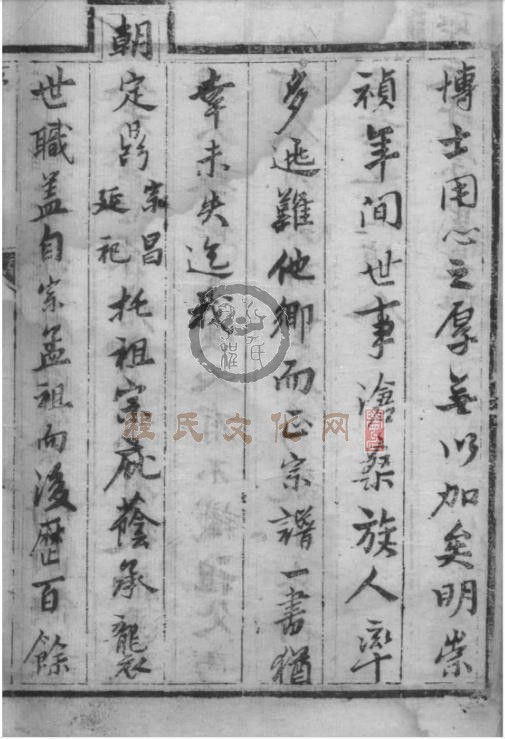 博士用心之厚無以加矣明崇
禎年间世事滄桑族人率
多逃難他鄉而正宗譜一書猶
幸未失迄我
朝定鼎宗昌延祀托祖宗庇蔭承襲
世職盖自宗孟祖而後歷百餘
程氏文化网